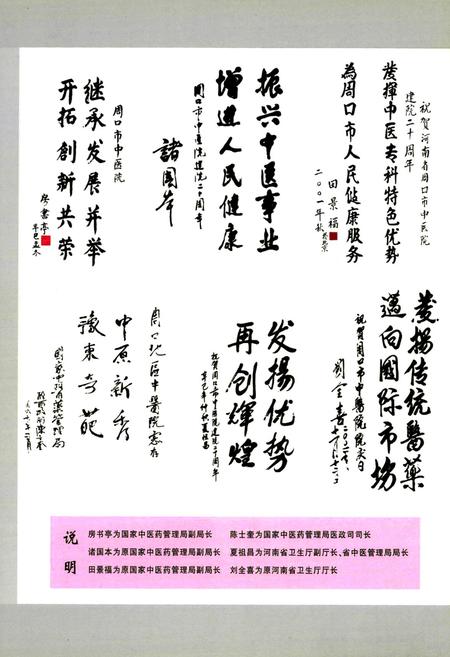 祝贺河南省周口市中医院
建院二十周年
發揮中医专科特色优势
為周口市人民健康服务
田景福
二〇〇一年秋於北京
振兴中医事业
增进人民健康
周口市中医院建院二十周年
諸國本
周口市中医院
继承发展并举
开拓創新共荣
房書亭
辛巳孟冬
發揚传统醫藥
邁向國际市场
祝贺周口市中醫院院庆日
劉全喜
发揚优势
再创輝煌
祝贺周口市中医院建院二十周年
辛巳年仲秋夏祖昌
周口地区中醫院惠存
中原新秀
豫東奇葩
國家中医药管理局
说明
房书亭为国家中医药管理局副局长 陈士奎为国家中医药管理局医政司司长
诸国本为原国家中医药管理局副局长 夏祖昌为河南省卫生厅副厅长、省中医管理局局长
田景福为原国家中医药管理局副局长 刘全喜为原河南省卫生厅厅长